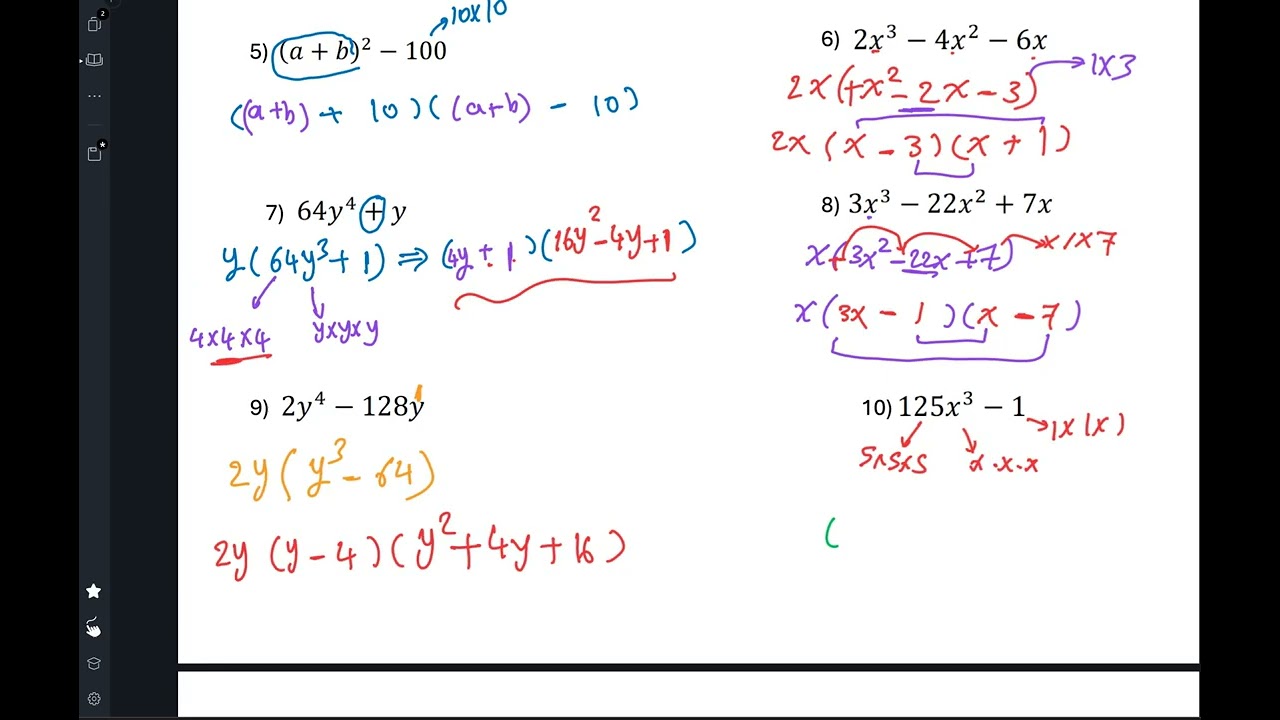 10x10
5) (a + b)² − 100
((a+b) + 10)((a+b) - 10)
6) 2x³ − 4x² − 6x
2x(+x² - 2x - 3) → 1x3
2x (x - 3)(x + 1)
7) 64y⁴ + y
y(64y³ + 1) ⇒ (4y + 1)(16y² - 4y + 1)
4x4x4 yxyxy
8) 3x³ − 22x² + 7x
x(3x² - 22x + 7) → 1x7
x(3x - 1)(x - 7)
9) 2y⁴ − 128y
2y(y³ - 64)
2y (y - 4)(y² + 4y + 16)
10) 125x³ − 1 → 1x1x1
5x5x5 x·x·x
(
2